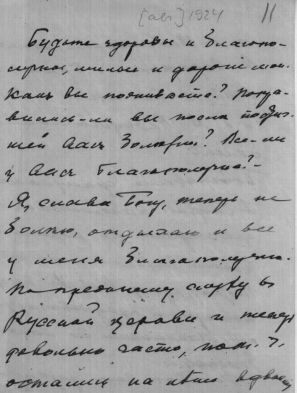 [авг] 1924 11
Будьте здоровы и благопо-
лучны, милые и дорогие мои.
Какъ вы поживаете? Попра-
вились-ли вы после постиг-
шей Васъ болезни? Все-ли
у Васъ благополучно?-
Я, слава Богу, теперь не
болѣю, отдыхаю и все
у меня благополучно.
По прежнему служу в
Русской церкви и теперь
довольно часто, т. ч.
остались на лѣто вдвоем